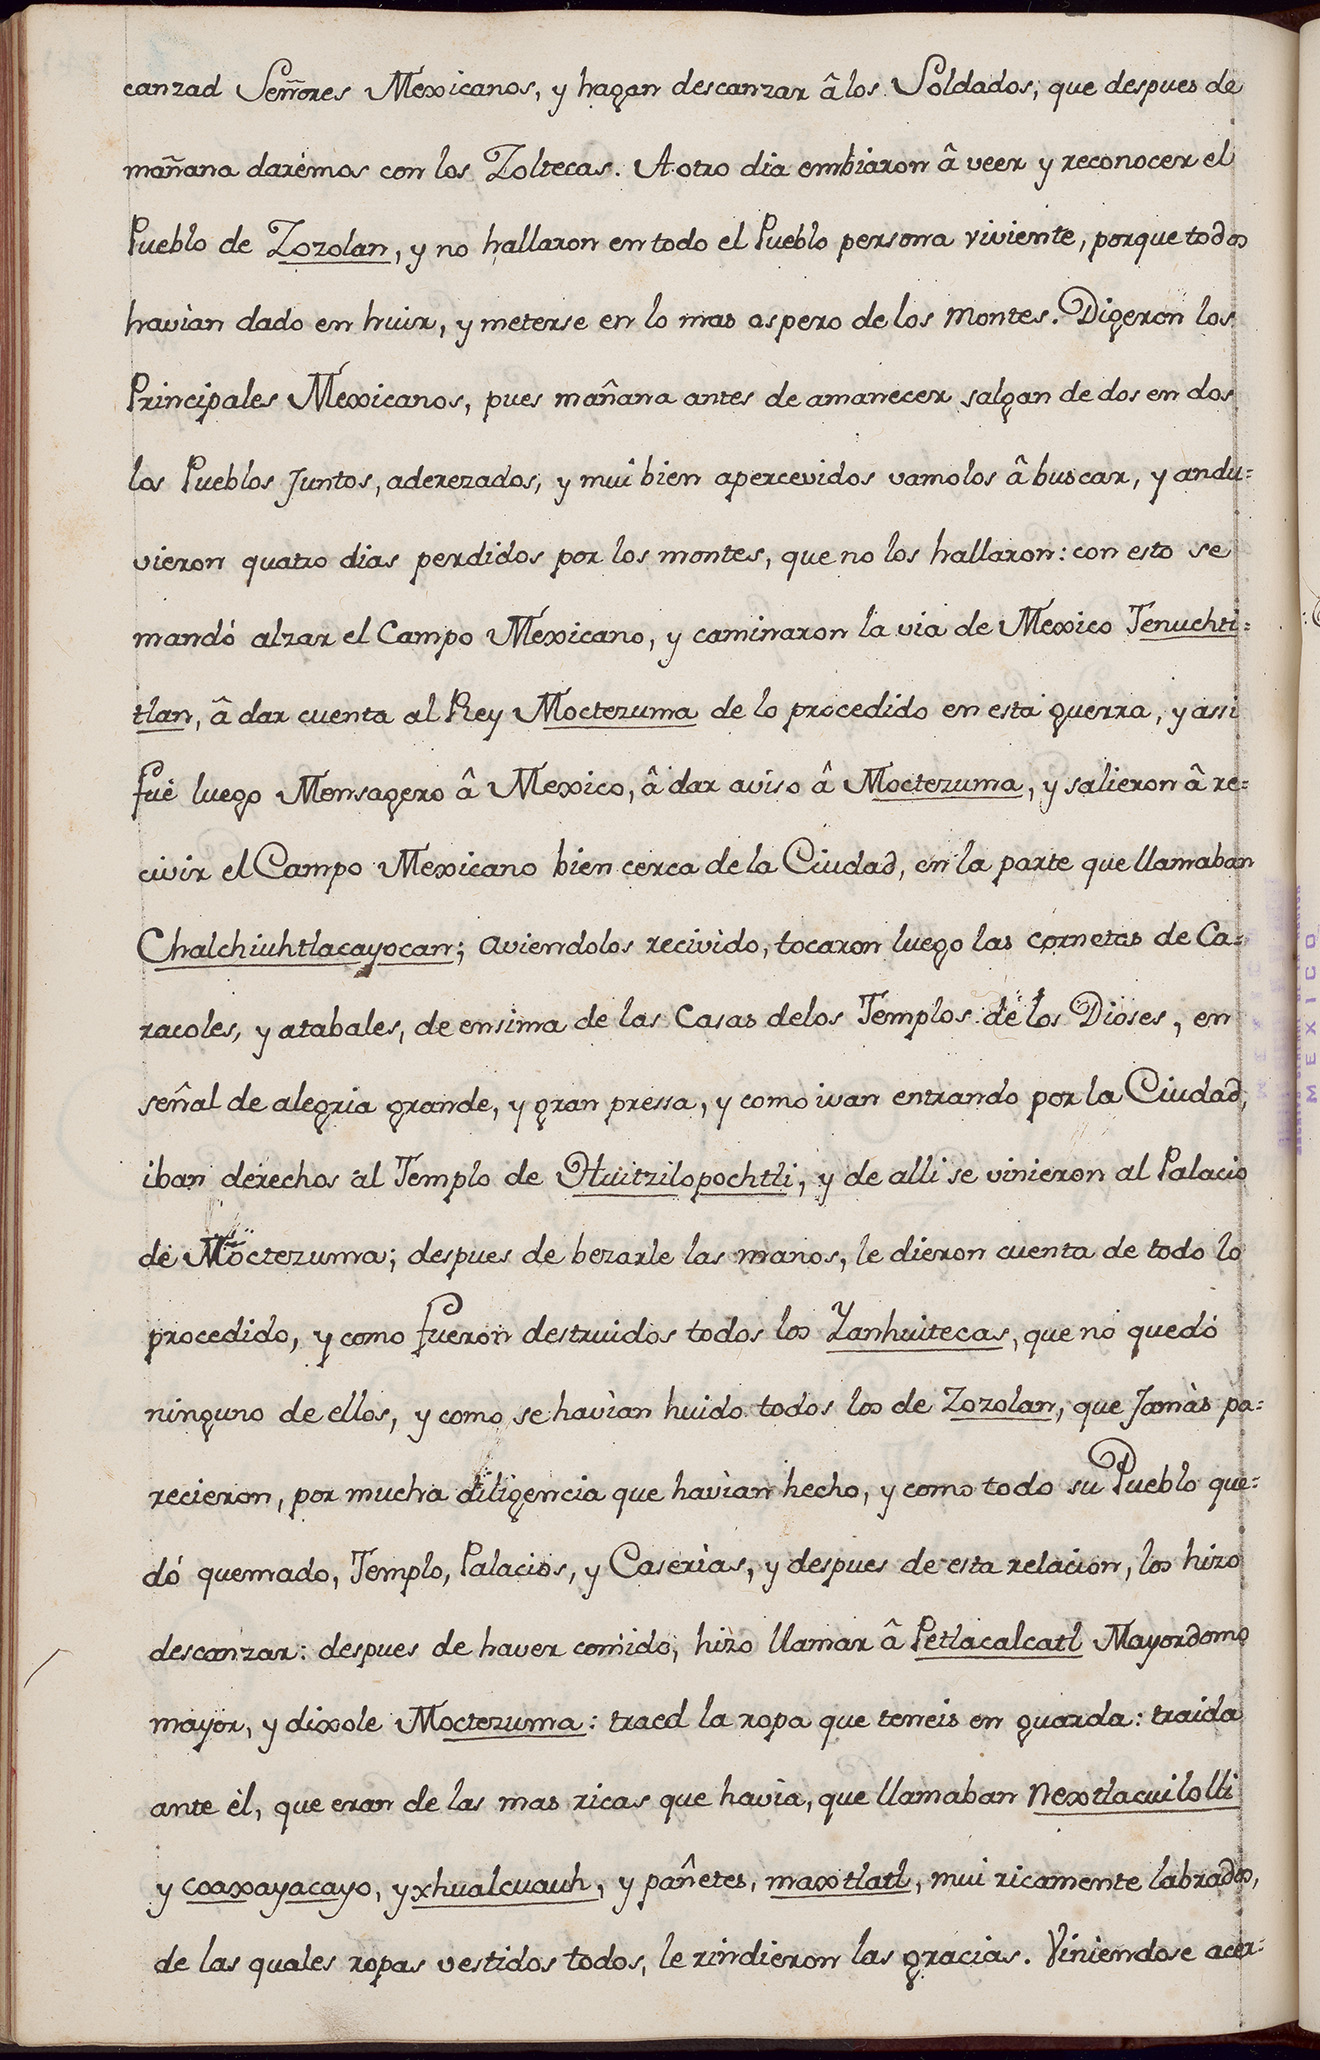 canzad Señores Mexicanos, y hagan descanzar â los Soldados, que despues de
mañana darèmos con los Zoltecas. A otro dia embiaron â veer y reconocer el
Pueblo de Zozolan, y no hallaron en todo el Pueblo persona viviente, porque todos
havìan dado en huir, y meterse en lo mas aspero de los montes. Digeron los
Principales Mexicanos, pues mañana antes de amanecer salgan de dos en dos
los Pueblos Juntos, aderezados, y mui bien apercevidos vamolos â buscar, y andu=
vieron quatro dias perdidos por los montes, que no los hallaron: con esto se
mandó alzar el Campo Mexicano, y caminaron la via de Mexico Tenuchti=
tlan, â dar cuenta al Rey Moctezuma de lo procedido en esta guerra, y assi
fuè luego Mensagero â Mexico, â dar aviso â Moctezuma, y salieron â re=
civir el Campo Mexicano bien cerca de la Ciudad, en la parte que llamaban
Chalchiuhtlacayocan; aviendolos recivido, tocaron luego las cornetas de Ca=
racoles, y atabales, de ensima de las Casas delos Templos de los Dioses, en
señal de alegria grande, y gran pressa, y como ivan entrando por la Ciudad,
iban derechos al Templo de Huitzilopochtli, y de alli se vinieron al Palacio
de Moctezuma; despues de bezarle las manos, le dieron cuenta de todo lo
procedido, y como fueron destruidos todos los Yanhuitecas, que no quedó
ninguno de ellos, y como se havìan huido todos los de Zozolan, que Jamàs pa=
recieron, por mucha diligencia que havìan hecho, y como todo su Pueblo que=
dó quemado, Templo, Palacios, y Caserìas, y despues de esta relacion, los hizo
descanzar: despues de haver comido, hizo llamar â Petlacalcatl Mayordomo
mayor, y dixole Moctezuma: traed la ropa que teneis en guarda: traida
ante èl, que eran de las mas ricas que havìa, que llamaban Nextlacuilolli
y coaxayacayo, y xhualcuauh, y pañetes, maxtlatl, mui ricamente labrados,
de las quales ropas vestidos todos, le rindieron las gracias. Viniendose acer=
MEXICO